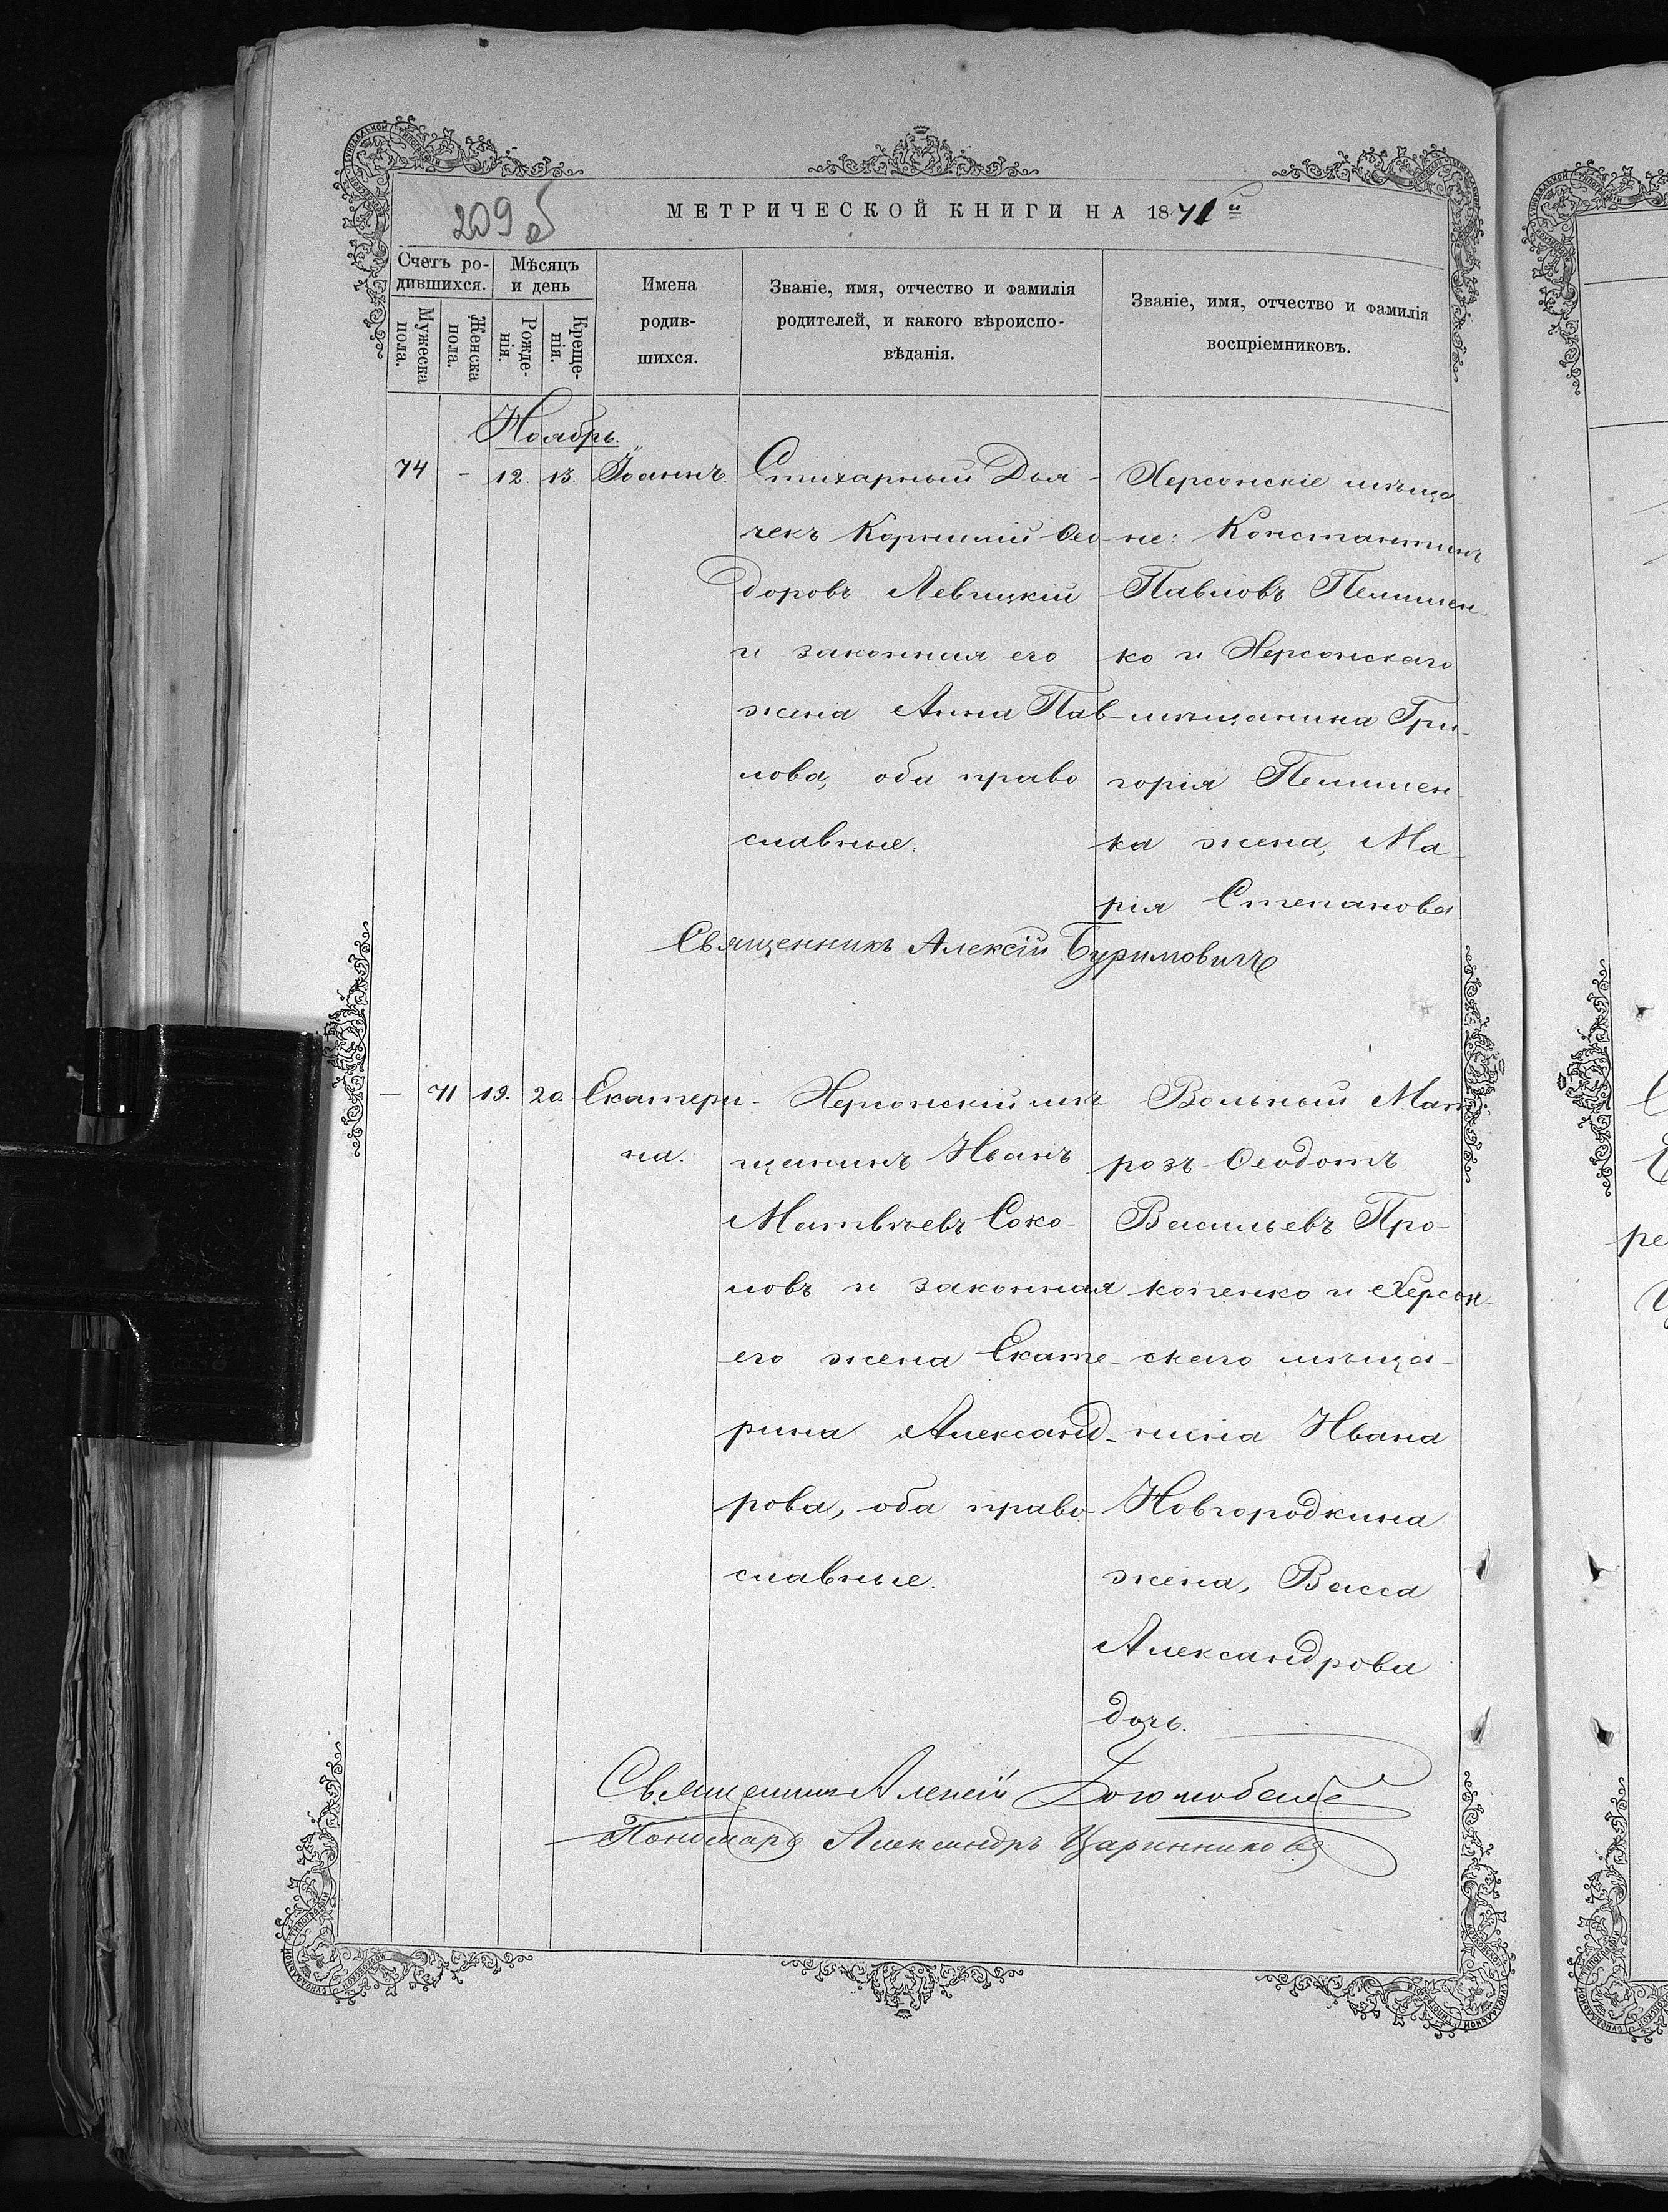 209 б
МЕТРИЧЕСКОЙ КНИГИ НА 1871й
Счетъ ро-
дившихся.
Мужеска
пола.
Женска
пола.
Мѣсяцъ
и день
Рожде-
нія.
Креще-
нія.
Имена
родив-
шихся.
Званіе, имя, отчество и фамилія
родителей, и какого вѣроиспо-
вѣданія.
Званіе, имя, отчество и фамилія
воспріемниковъ.
Ноябрь.
74 - 12. 13. Іоаннъ.
Стихарный Дья-
чекъ Корнилій Ѳео-
доровъ Левицкій
и законная его
жена Анна Пав-
лова, оба право
славные.
Херсонскіе мѣща
не: Константинъ
Павловъ
ко и Херсонскаго
мѣщанина Гри-
горія
ка жена, Ма-
рія Степанова
Священникъ Алексій Буримовичъ
— 71 19. 20. Екатери-
на.
Херсонскій мѣ
щанинъ Иванъ
Матвѣевъ Соко-
ловъ и законная
его жена Екате-
рина Александ-
рова, оба право-
славные.
Вольный Мат
розъ Ѳеодотъ
Васильевъ Про-
копенко и Херсон-
скаго мѣща-
нина Ивана
Новгородкина
жена, Васса
Александрова
дочь.
Священникъ Алексій
Пономарь Александръ Царинниковъ